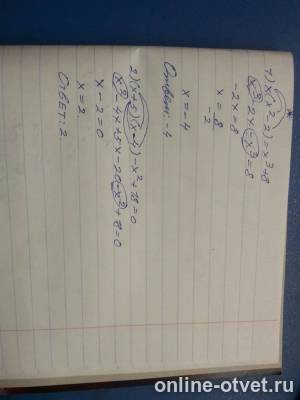 1) x(x² - 2) = x³ + 8
x³ - 2x - x³ = 8
-2x = 8
x = 8/-2
x = -4
Ответ: -4
2) (x+5)(x-4) - x² + 18 = 0
x² - 4x + 5x - 20 - x² + 18 = 0
x - 2 = 0
x = 2
Ответ: 2
online-otvet.ru